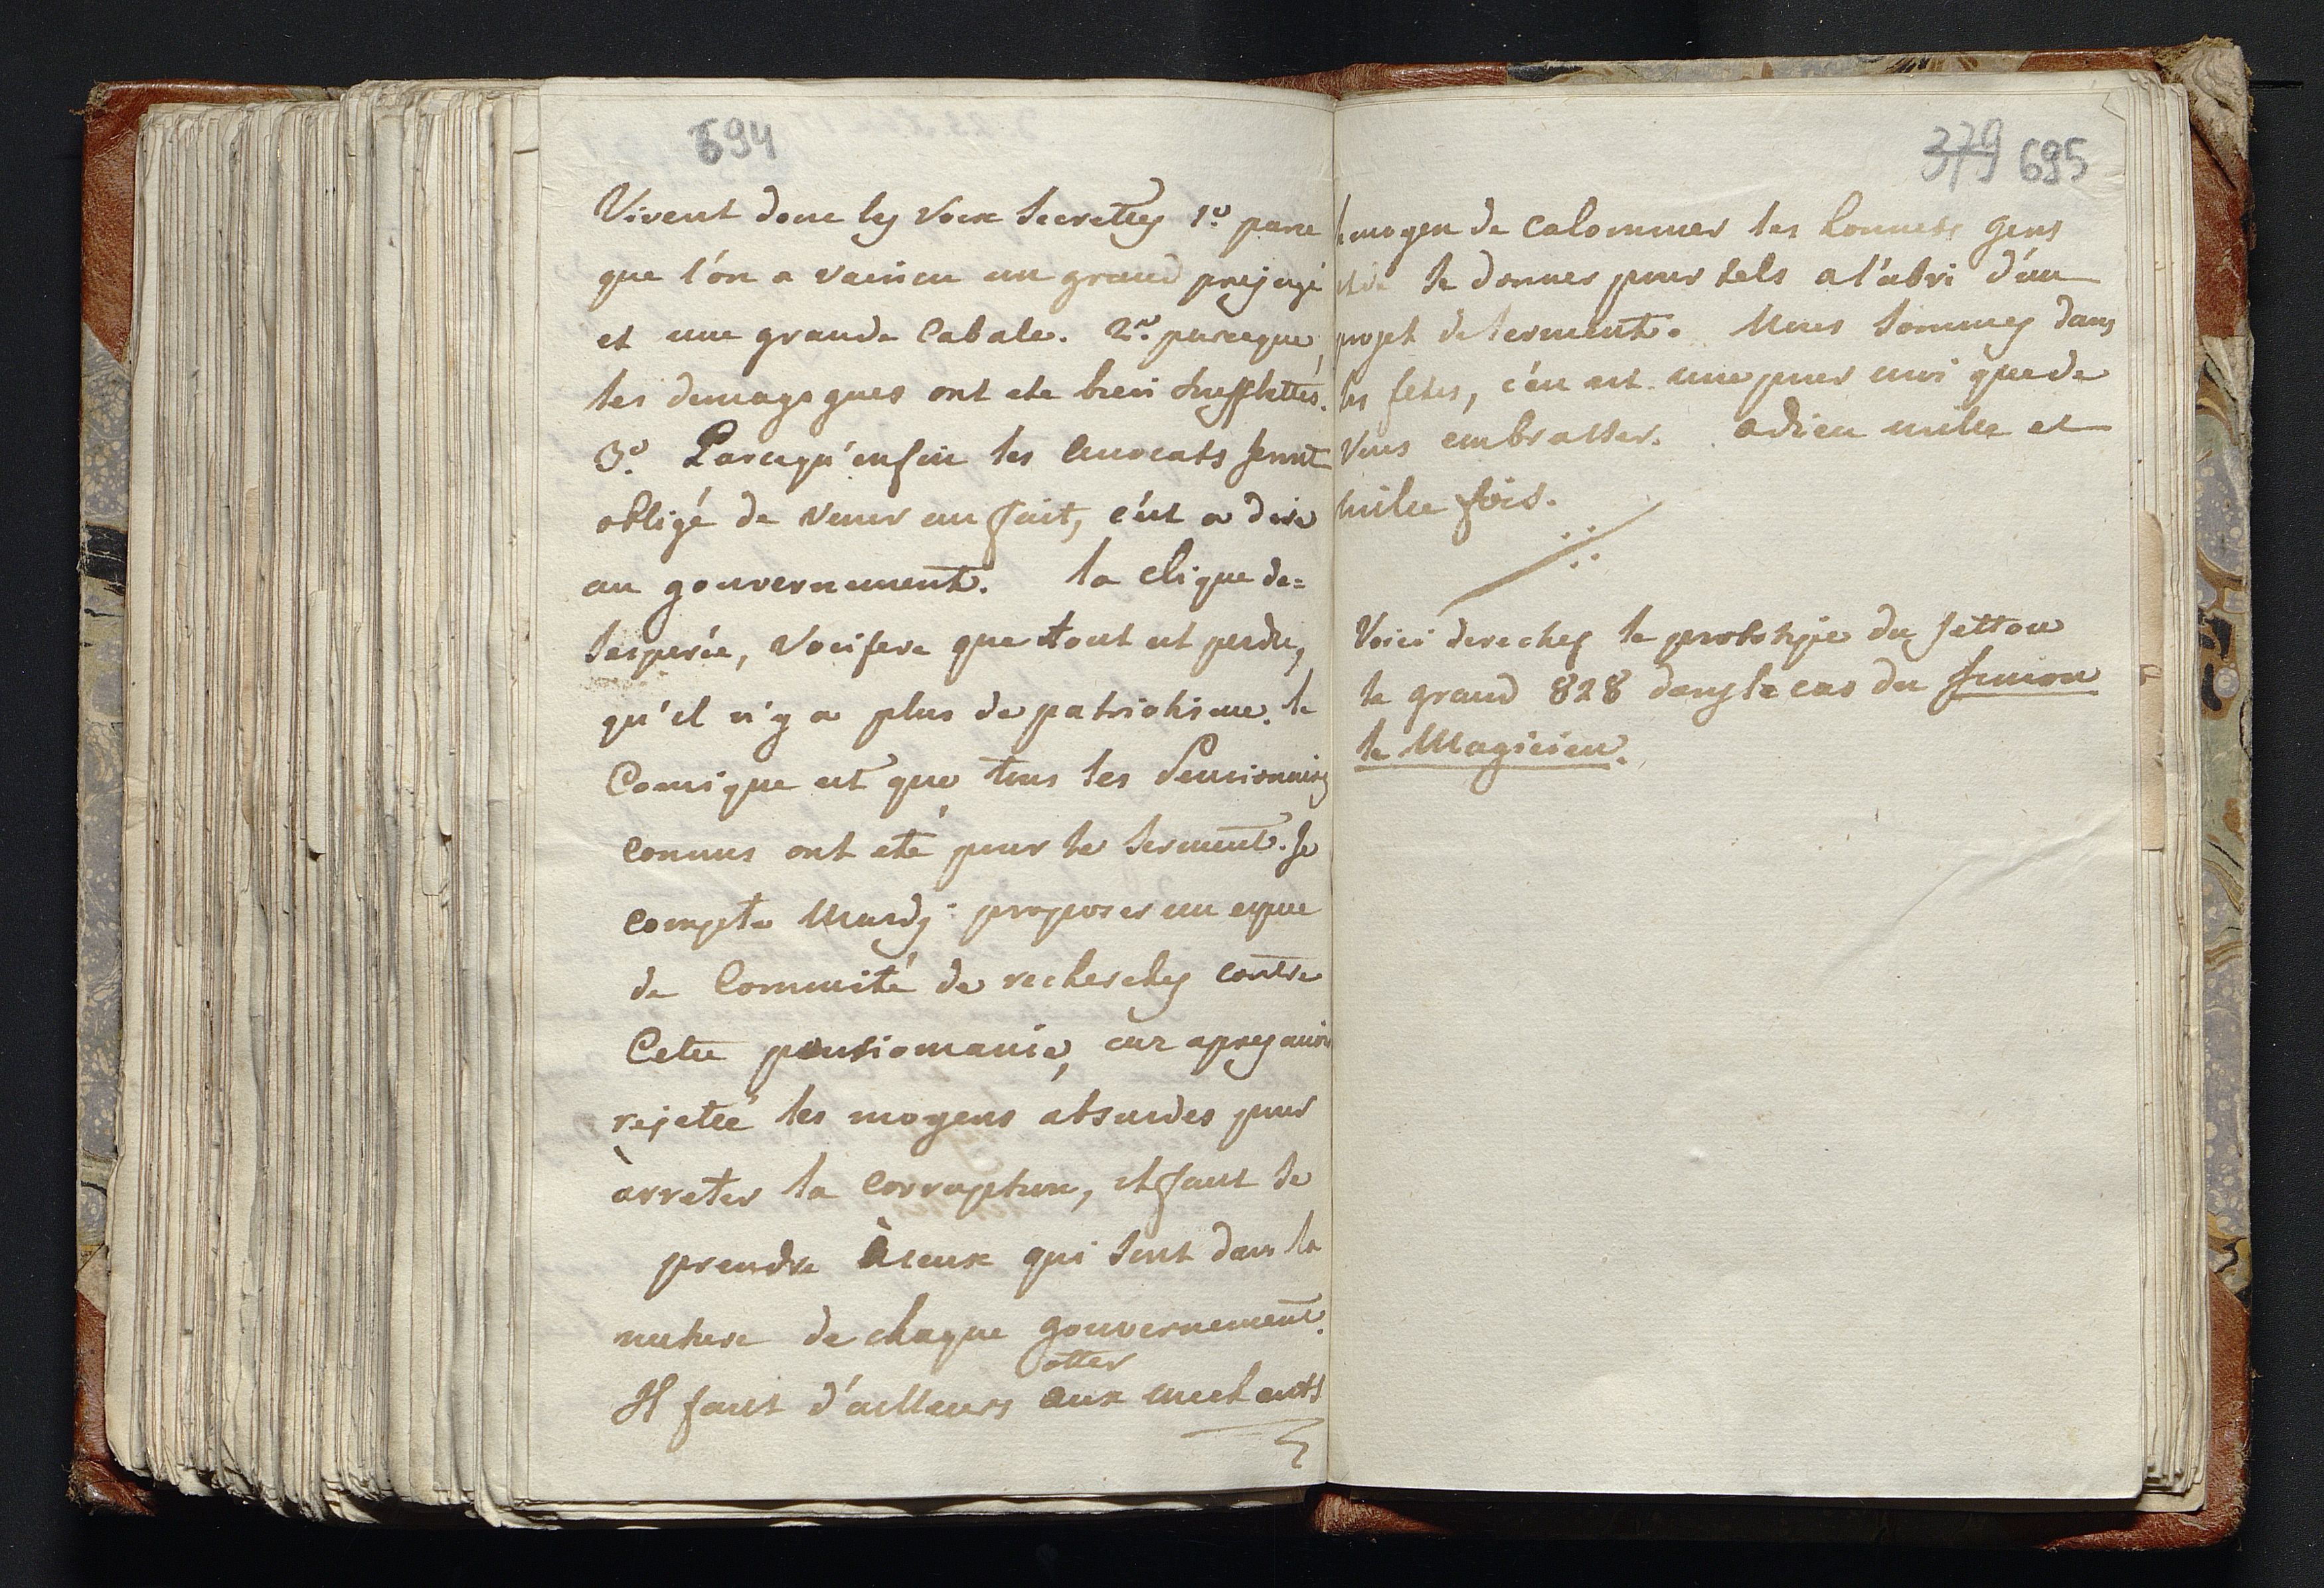 694
Vivent donc les voix secrettes 1.o parce
que l'on a vaincu un grand prejugé
et une grande Cabale. 2.o parceque
les demagogues ont ete bien souffletés.
3.o Parcequ'enfin les avocats seront
obligé de venir au fait, c'est a dire
au gouvernement. la clique de=
sesperée, vocifere que tout est perdu,
qu'il n'y a plus de patriotisme. le
Comique est que tous les Pensionnaires
connus ont eté pour le serment. Je
compte Mardy proposer un espece
de Commité de recherches contre
Cette pensiomanie, car apres avoir
rejetté les moyens absurdes pour
arreter la corruption, il faut se
prendre à ceux qui sont dans la
nature de chaque gouvernement.
Il faut d'ailleurs otter aux mechants
379 695
le moyen de calomnier les honnets gens
et de se donner pour tels a l'abri d'un
projet de serment. Nous sommes dans
les fetes, c'en est une pour moi que de
vous embrasser. adieu mille et
mille fois.
Voici derechef le prototype du jetton
le grand 828 dans le cas du Simon
le Magicien.